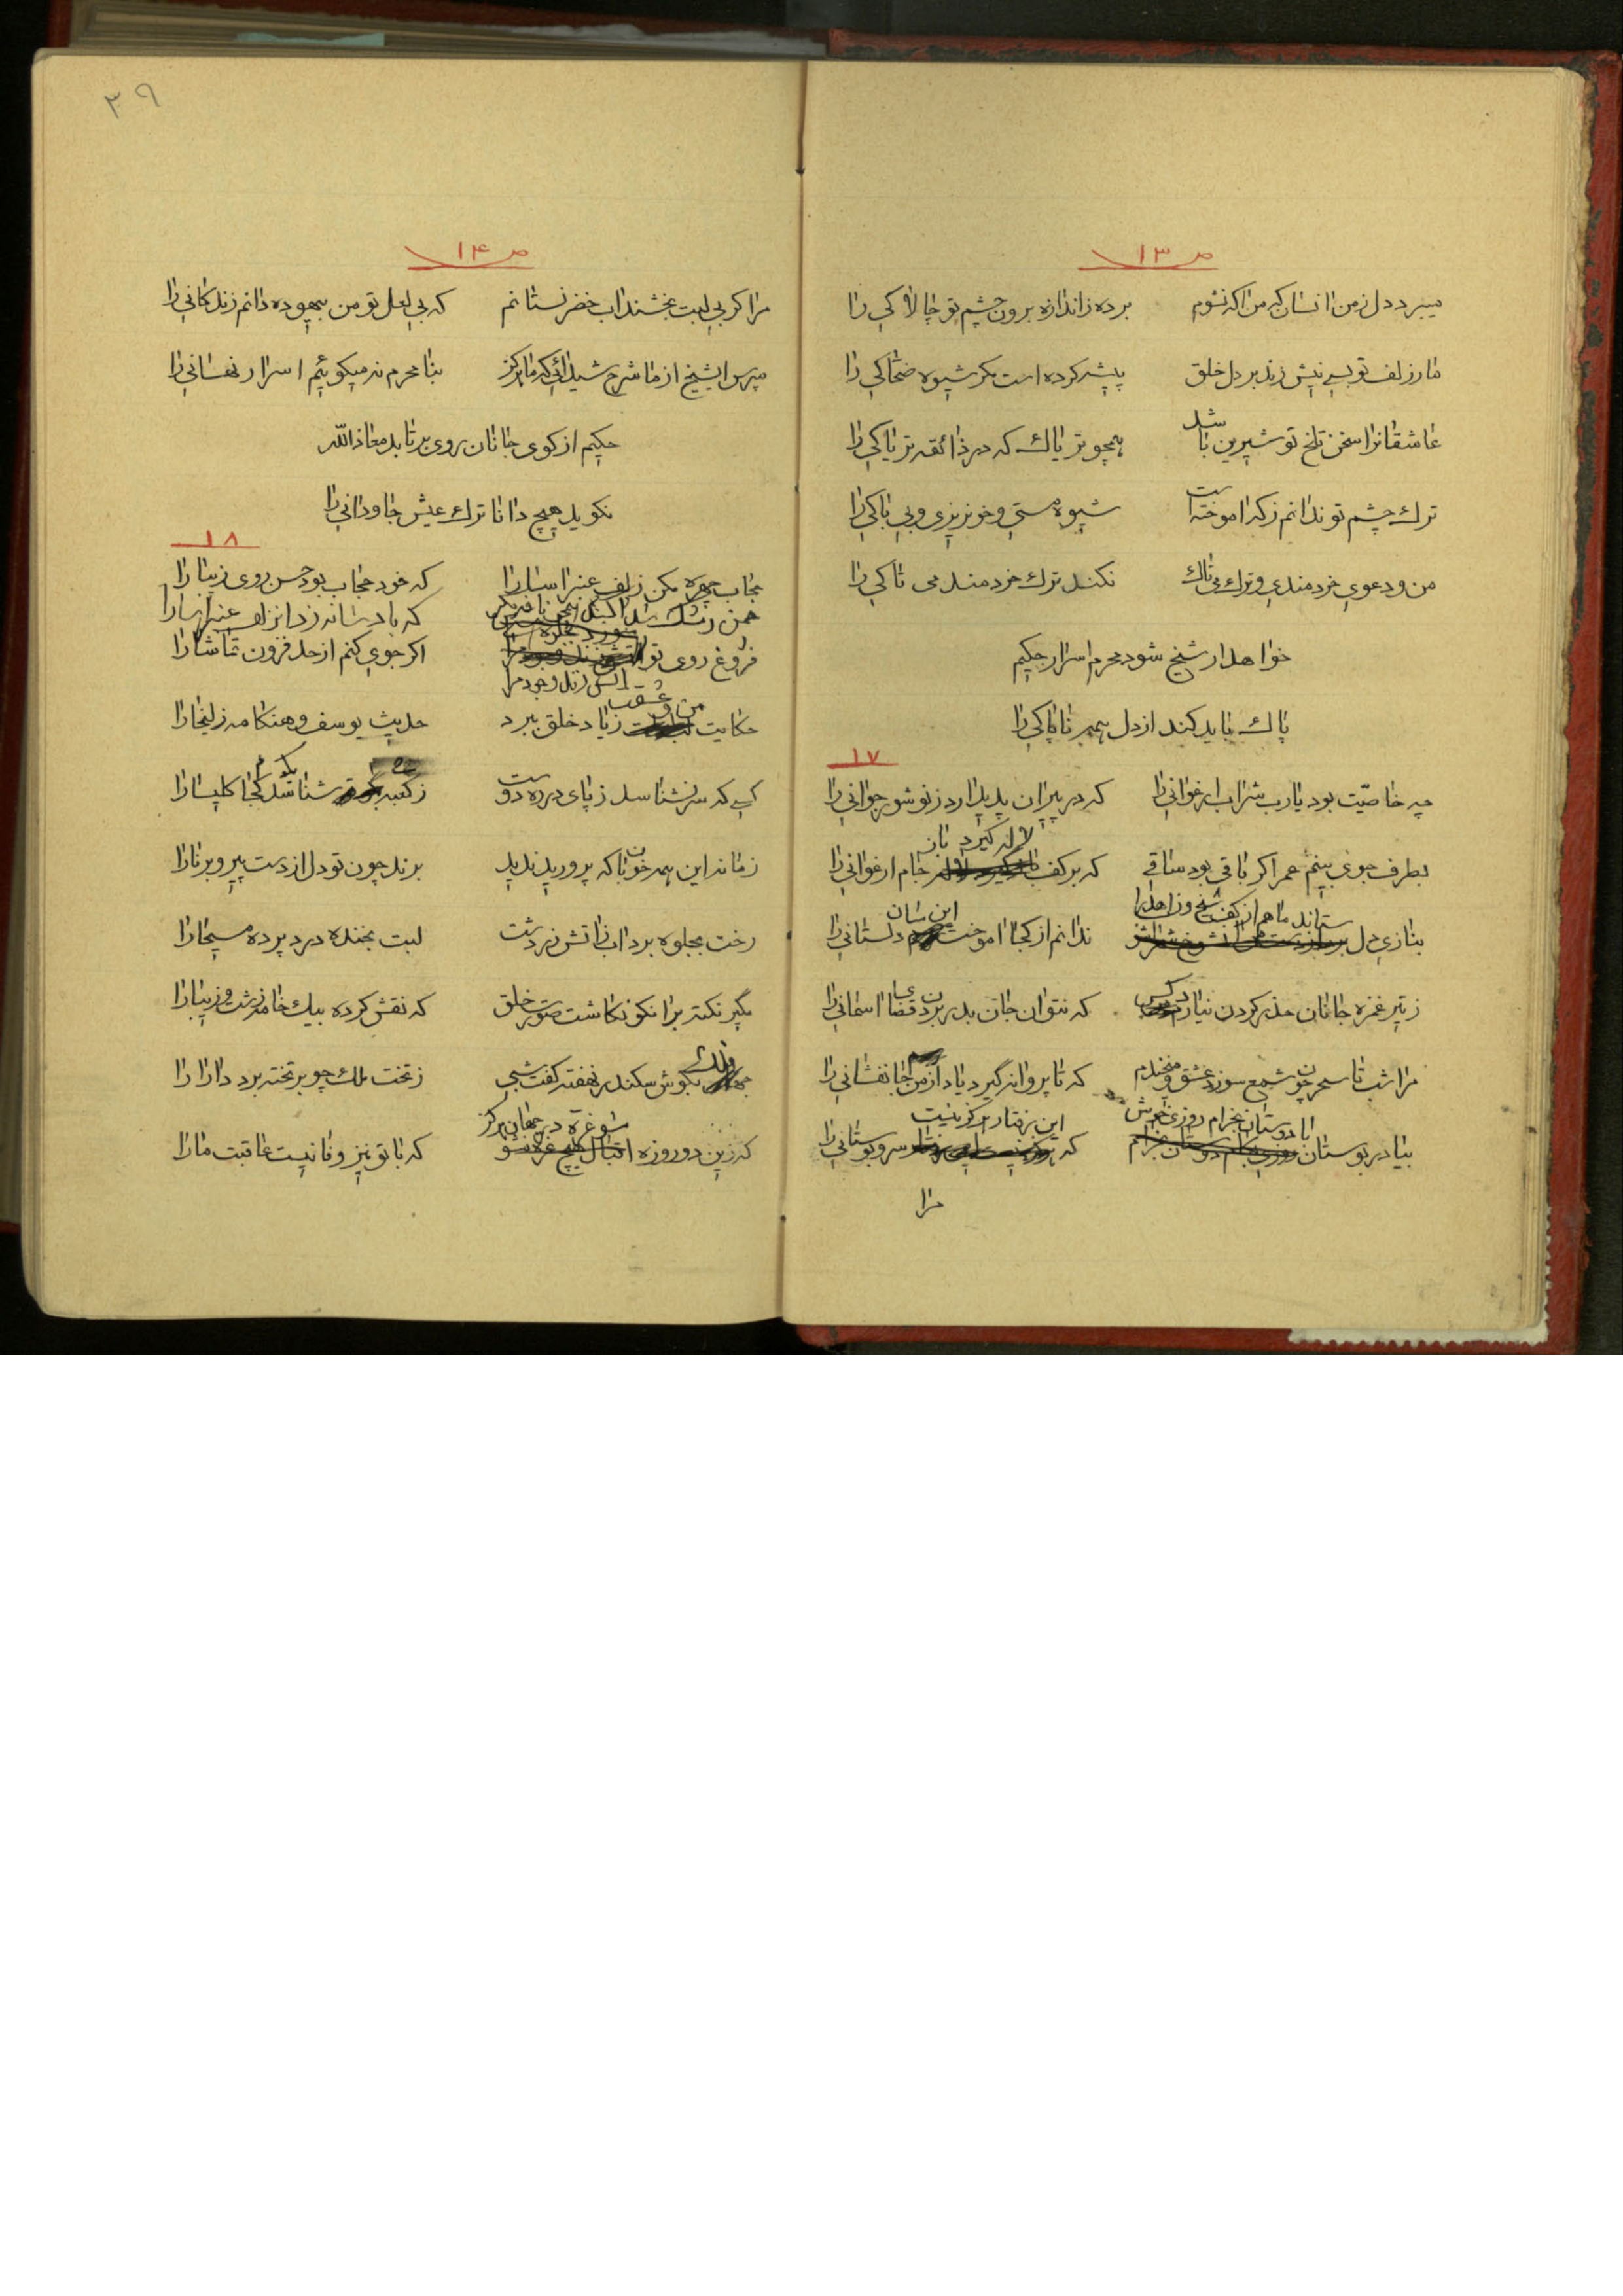 ص ۱۳
میبرد دل ز من انسان که من اکه نشوم برده ز اندازه برون چشم تو چالاکی را
مار زلف تو بسی نیش زند بر دل خلق پیشه کرده است مکر شیوه ضحاکی را
عاشقانرا سخن تلخ تو شیرین باشد همچو تریاک که در ذائقه تریاکی را
ترک چشم تو ندانم ز که اموخته است شیوه مستی و خونریزی و بی باکی را
من و دعوی خردمندی و ترک می تاک نکند ترک خردمند می تاکی را
خواهد ار شیخ شود محرم اسرار حکیم
پاک باید کند از دل همه ناپاکی را
۱۷
چه خاصیّت بود یارب شراب ارغوانی را که در پیران پدید ارد ز نو شور جوانی را
لاله کیرد نان
بطرف جوی بینم عمر اکر باقی بود ساقی که بر کف جام ارغوانی را
ستاند ماهم از کف شیخ و زاهد را این سان
ببازی دل ندانم از کجا اموخت دلستانی را
ز تیر غمزه جانان حذر کردن نیارد کس که نتوان جان بدر بردن قضای اسمانی را
مرا شب تا سحر چون شمع سوزد عشق و میخندم که تا پروانه گیرد یاد از من جانفشانی را
با دوستان بخرام روزی خوش این رفتار هرکز نیست
بیا در بوستان که سرو بوستانی را
مرا
۳۹
ص ۱۴
مرا کر بی لبت بخشند اب خضر نستانم که بی لعل تو من بیهوده دانم زندکانی را
مپرس ایشیخ از ما شرح شیدائی که ما هرکز بنا محرم نمیکوئیم اسرار نهانی را
حکیم از کوی جانان روی برتابد معاذ الله
نکوید هیچ دانا ترک عیش جاودانی را
۱۸
حجاب چهره مکن زلف عنبر اسا را که خود حجاب بود حسن روی زیبا را
چمن که باد شانه زد انزلف عنبر اسا را
فروغ روی تو اکر جوی کنم از حد فزون تماشا را
اتش زند وجود مرا
من و عشقت
حکایت ز یاد خلق ببرد حدیث یوسف و هنکامه زلیخا را
کسی که سر نشناسد ز پای در ره دوست ز کعبه شناسد کجا کلیسا را
زمانه این همه خوبان که پرورید ندید برند چون تو دل از دست پیر و برنا را
رخت بجلوه برد اب ز اتش زردشت لبت بخنده درد پرده مسیحا را
مگیر نکته بر انکو نکاشت صورت خلق که نقش کرده بیک خامه زشت و زیبا را
فلک بکوش سکندر نهفته کفت شبی ز تخت ملک چو بر تخته برد دارا را
مشو غره در جهان هرکز
که زین دو روزه اقبال که با تو نیز وفا نیست عاقبت ما را